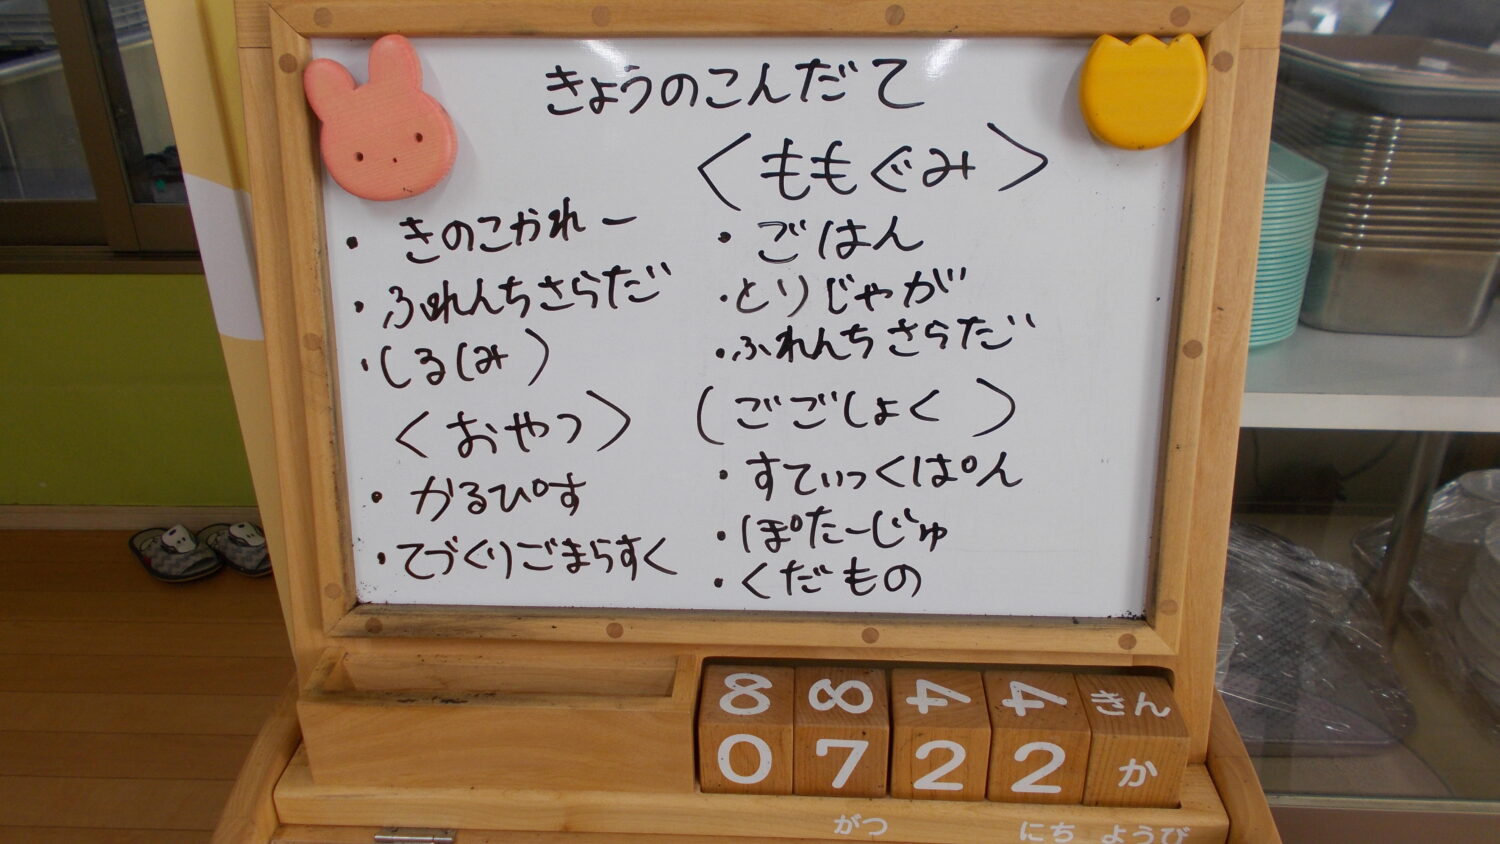 きょうのこんだて
・きのこかれー
・ふれんちさらだ
・(るくみ)
<おやつ>
・かるぴす
・てづくりごまらすく
<ももぐみ>
・ごはん
・とりじゃが
・ふれんちさらだ
(ごごしょく)
・すてぃっくぱん
・ぽたーじゅ
・くだもの
8 8 4 4 きん
0 7 2 2 か
がつ にち ようび